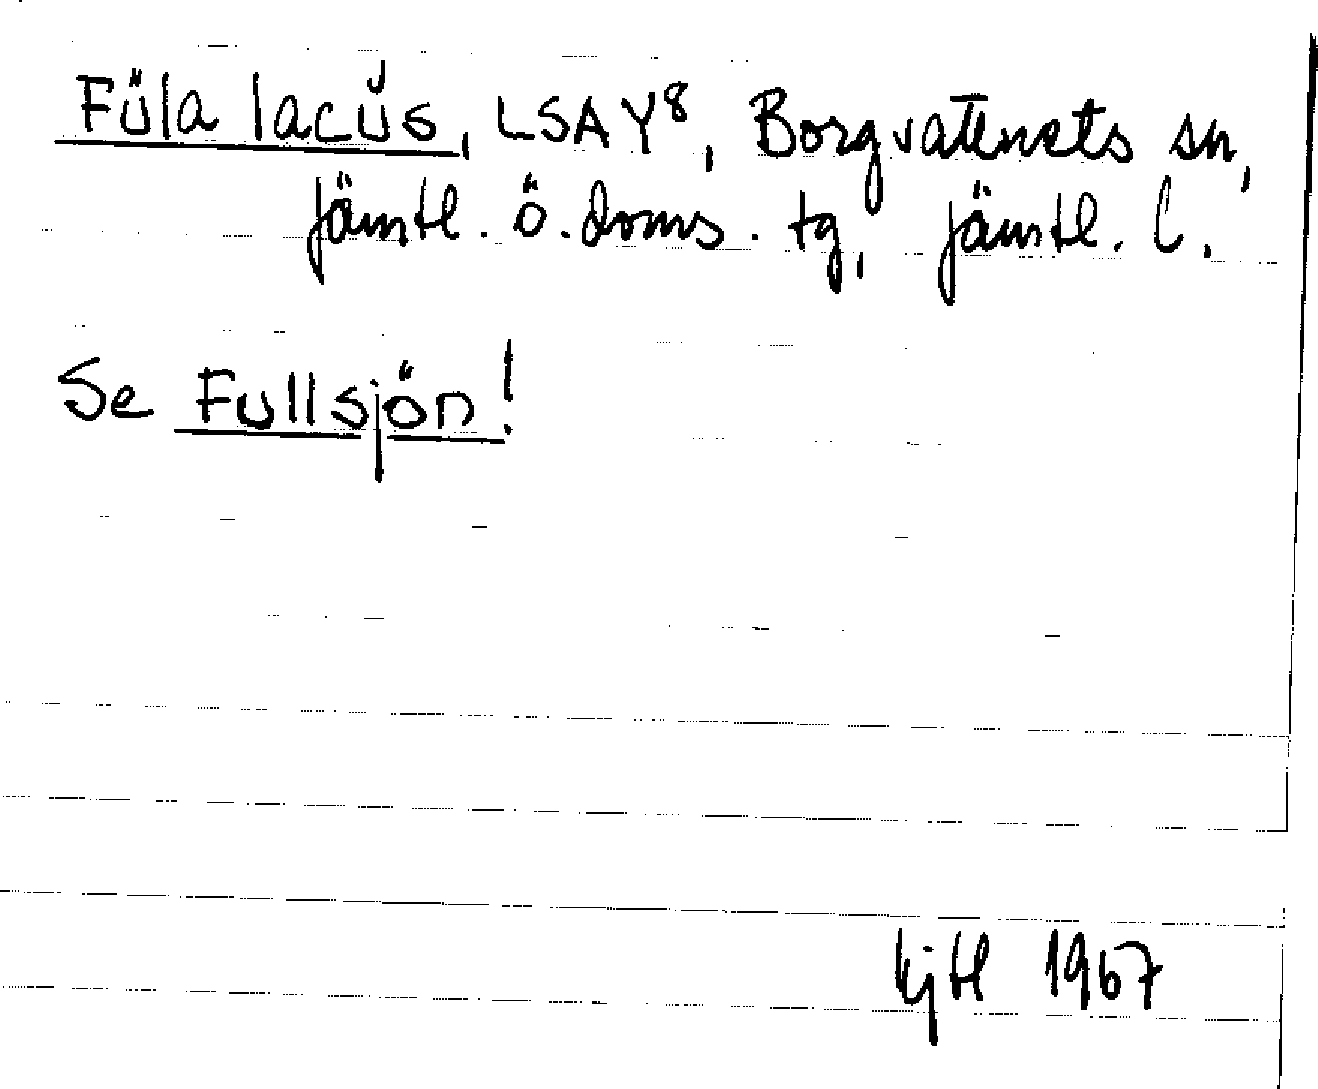 Füla lacŭs, LSA Y⁸, Borgvattnets sn,
Jämtl. ö. doms. tg, Jämtl. l.
Se Fullsjön!
kjtl 1967